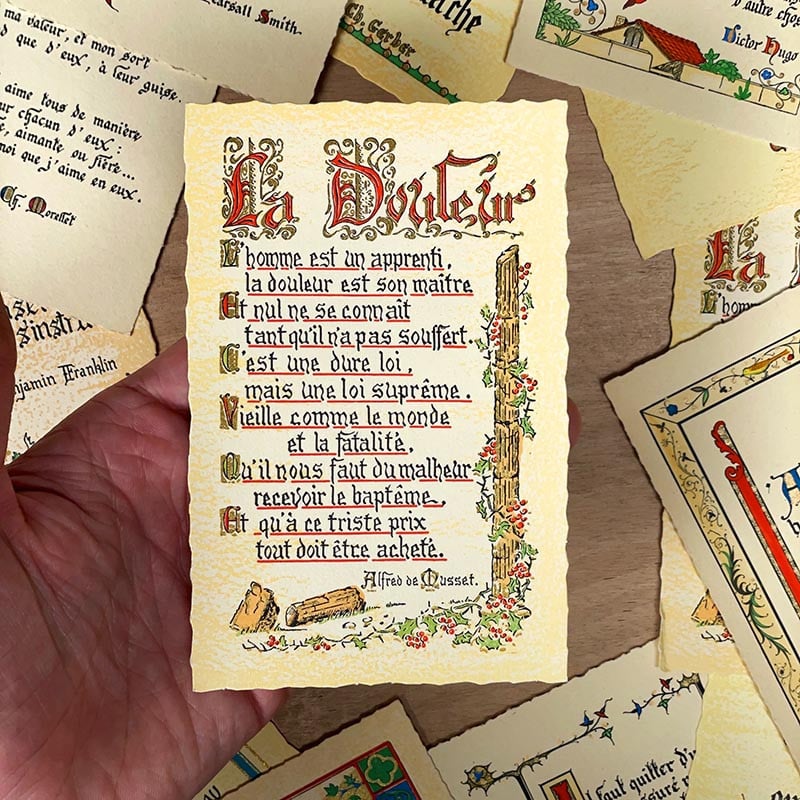 La Douleur
L'homme est un apprenti,
la douleur est son maître
Et nul ne se connaît
tant qu'il n'a pas souffert.
C'est une dure loi,
mais une loi suprême.
Vieille comme le monde
et la fatalité,
Qu'il nous faut du malheur
recevoir le baptême,
Et qu'à ce triste prix
tout doit être acheté.
Alfred de Musset.
earsall Smith.
ma valeur, et mon sort
que d'eux, à leur guise.
aime tous de manière
ur chacun d'eux :
, aimante ou fière...
moi que j'aime en eux.
Ch. Morellet
Ch. Gerber
d'autre cho
Victor Hugo
njamin Franklin
La D
L'homm
faut quitter d'u